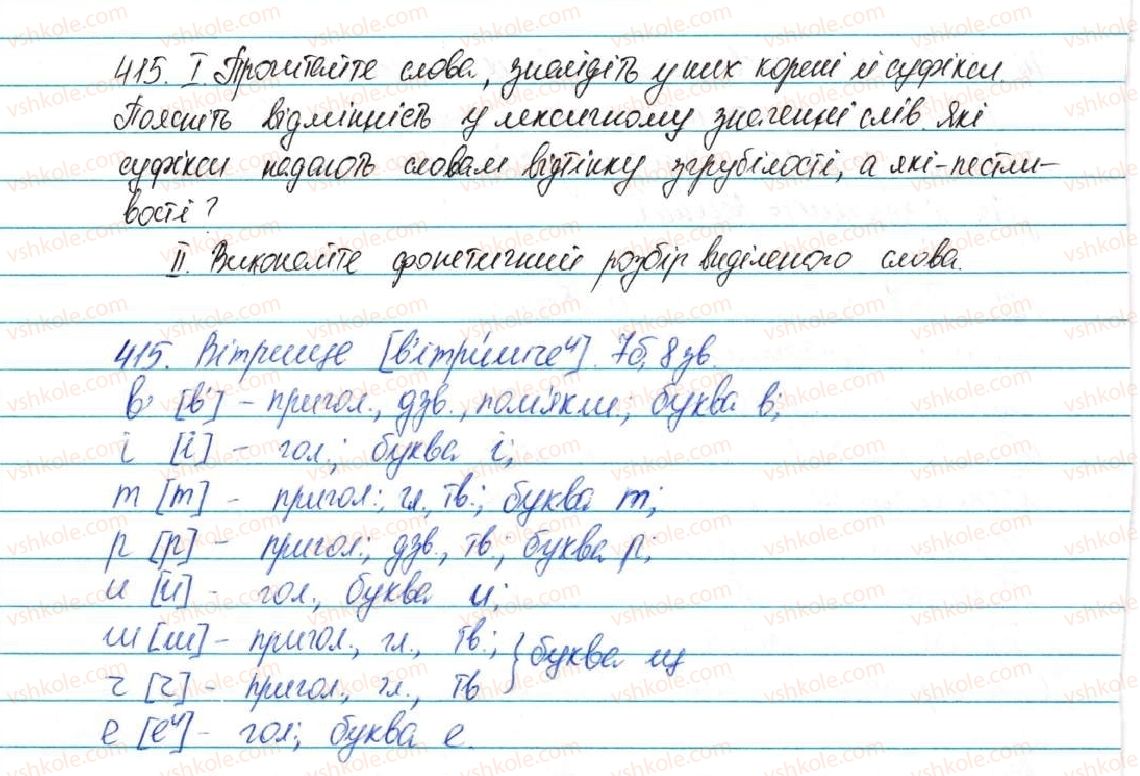 415. I. Прочитайте слова, знайдіть у них корені й суфікси.
Поясніть відмінність у лексичному значенні слів. Які
суфікси надають словам відтінку згрубілості, а які - пестли-
вості?
II. Виконайте фонетичний розбір виділеного слова.
415. Вітрище [в'ітри́шчеи]. 7б, 8 зв.
в [в'] – пригол., дзв., пом'якш.; буква в;
і [і] – гол.; буква і;
т [т] – пригол.; гл., тв.; буква т;
р [р] – пригол.; дзв., тв.; буква р;
и [и́] – гол., буква и;
ш [ш] – пригол., гл., тв.; } буква щ
ч [ч] – пригол., гл., тв
е [еи] – гол.; буква е.
vshkole.com